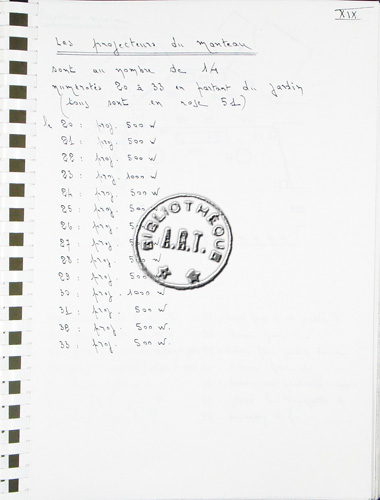 XIX
Les projecteurs du manteau
sont au nombre de 14
numérotés 20 à 33 en partant du jardin
(tous sont en rose 51)
le 20 : proj. 500 W
21 : proj. 500 W
22 : proj. 500 W
23 : proj. 1000 W
24 : proj. 500 W
25 : proj. 500
26 : proj. 5
27 : proj.
28 : proj. 500
29 : proj. 500 W
30 : proj. 1000 W
31 : proj. 500 W.
32 : proj. 500 W.
33 : proj. 500 W.
BIBLIOTHÈQUE
A.R.T.